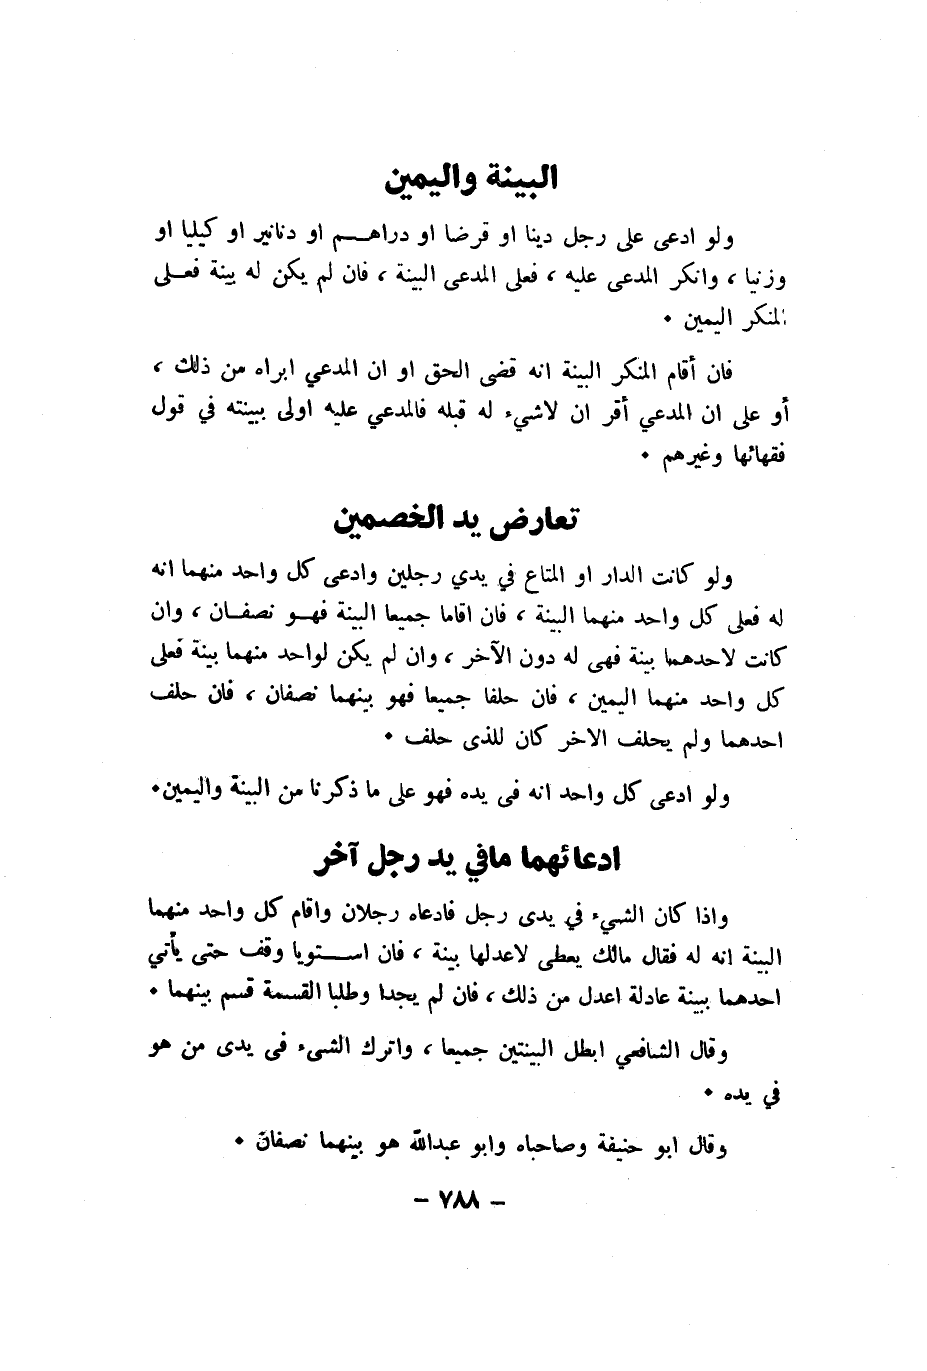 البينة واليمين
ولو ادعى على رجل دينا او قرضا او دراهـــم او دنانير او كيليا او
وزنيا ، وانكر المدعى عليه ، فعلى المدعى البينة ، فان لم يكن له بينة فعـلى
المنكر اليمين •
فان أقام المنكر البينة انه قضى الحق او ان المدعي ابراه من ذلك ،
أو على ان المدعي أقر ان لاشيء له قبله فالمدعي عليه اولى ببينته في قول
فقهائها وغيرهم •
تعارض يد الخصمين
ولو كانت الدار او المتاع في يدي رجلين وادعى كل واحد منهما انه
له فعلى كل واحد منهما البينة ، فان اقاما جميعا البينة فهـو نصفـان ، وان
كانت لاحدهما بينة فهى له دون الآخر ، وان لم يكن لواحد منهما بينة فعلى
كل واحد منهما اليمين ، فان حلفا جميعا فهو بينهما نصفان ، فان حلف
احدهما ولم يحلف الاخر كان للذى حلف •
ولو ادعى كل واحد انه فى يده فهو على ما ذكرنا من البينة واليمين•
ادعائهما مافي يد رجل آخر
واذا كان الشيء في يدى رجل فادعاه رجلان واقام كل واحد منهما
البينة انه له فقال مالك يعطى لاعدلها بينة ، فان اســـتويا وقف حتى يأتي
احدهما ببينة عادلة اعدل من ذلك ، فان لم يجدا وطلبا القسمة قسم بينهما •
وقال الشافعي ابطل البينتين جميعا ، واترك الشىء فى يدى من هو
في يده •
وقال ابو حنيفة وصاحباه وابو عبدالله هو بينهما نصفان •
– ٧٨٨ –